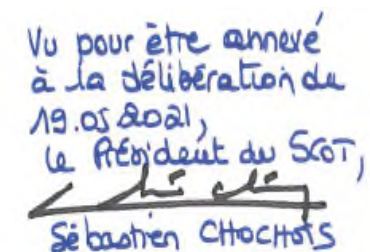 Vu pour être annexé
à la délibération du
19.05 2021,
le Président du SCOT,
Sébastien CHOCHOIS